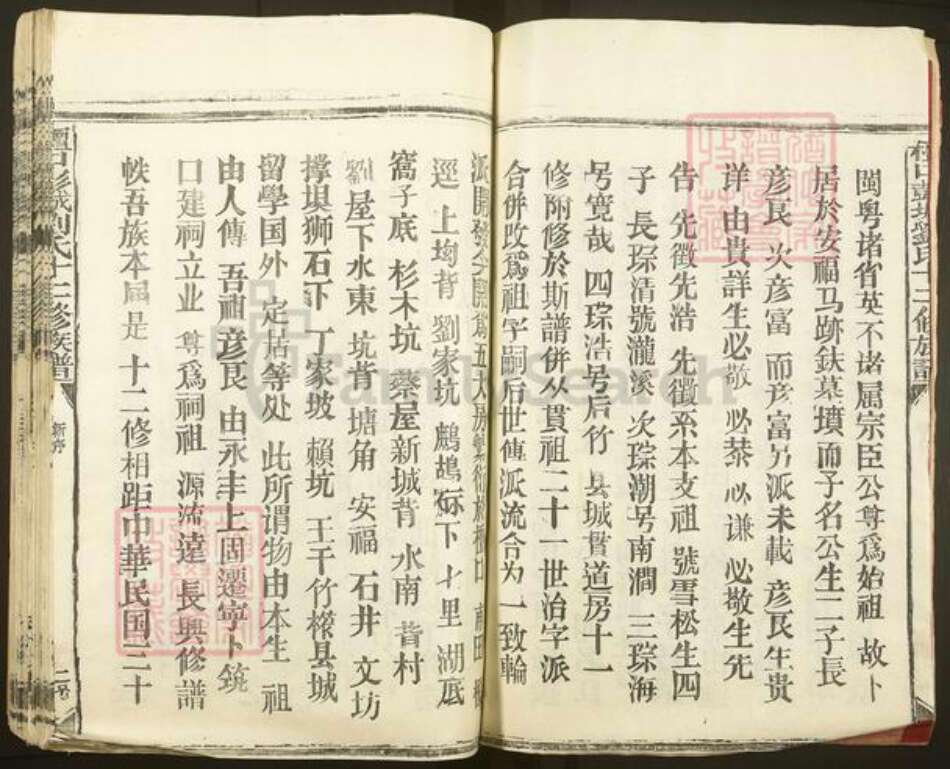 閩粤诸省英不诸属宗臣公尊爲始祖 故卜
居於安福马跡鈇墓墳而子名公生二子長
彦良 次彦富 而彦富另派未載 彦良生贵
洋 由貴詳生必敬 必恭 必谦 必敬生先
告 先徵先浩 先徵系本支祖 號雪松生四
子 長琮清號瀧溪 次琮潮号南澗 三琮海
号寛哉 四琮浩号后竹 县城貫道房十一
修附修於斯譜併从貫祖二十一世治字派
合併改爲祖字嗣后世傳派流合为一致輪
派開發
逕 上坳背 劉家坑 鷓鴣石下 七里 湖底
窩子底 杉木坑 蔡屋新城背 水南 背村
劉屋下水東 坑背 塘角 安福 石井 文坊
撑垻狮石下 丁家坡 賴坑 王干竹 樑县城
留學国外 定括等处 此所谓物由本生 祖
由人傳 吾祖彦良 由永丰上固遷寧卜筑
口建祠立业 尊爲祠祖 源流遠 長興修譜
帙吾族本届是 十二修相距中華民国三十
彭城刘氏十二修族譜
新序